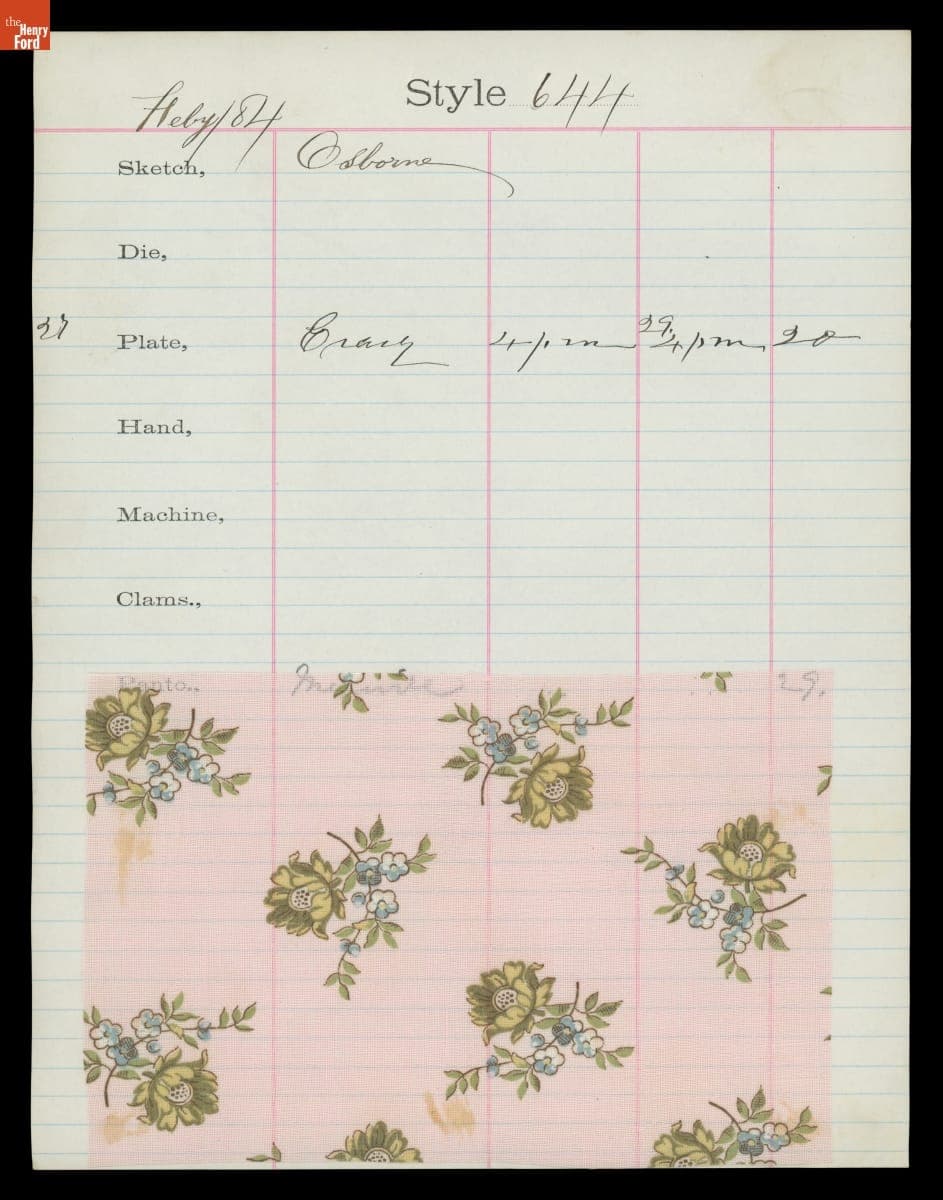 the Henry Ford
Style 644
Feby/84
Sketch, Osborne
Die,
29.
27 Plate, 4 pm 4 pm 20
Hand,
Machine,
Clams.,
Panto., 29.